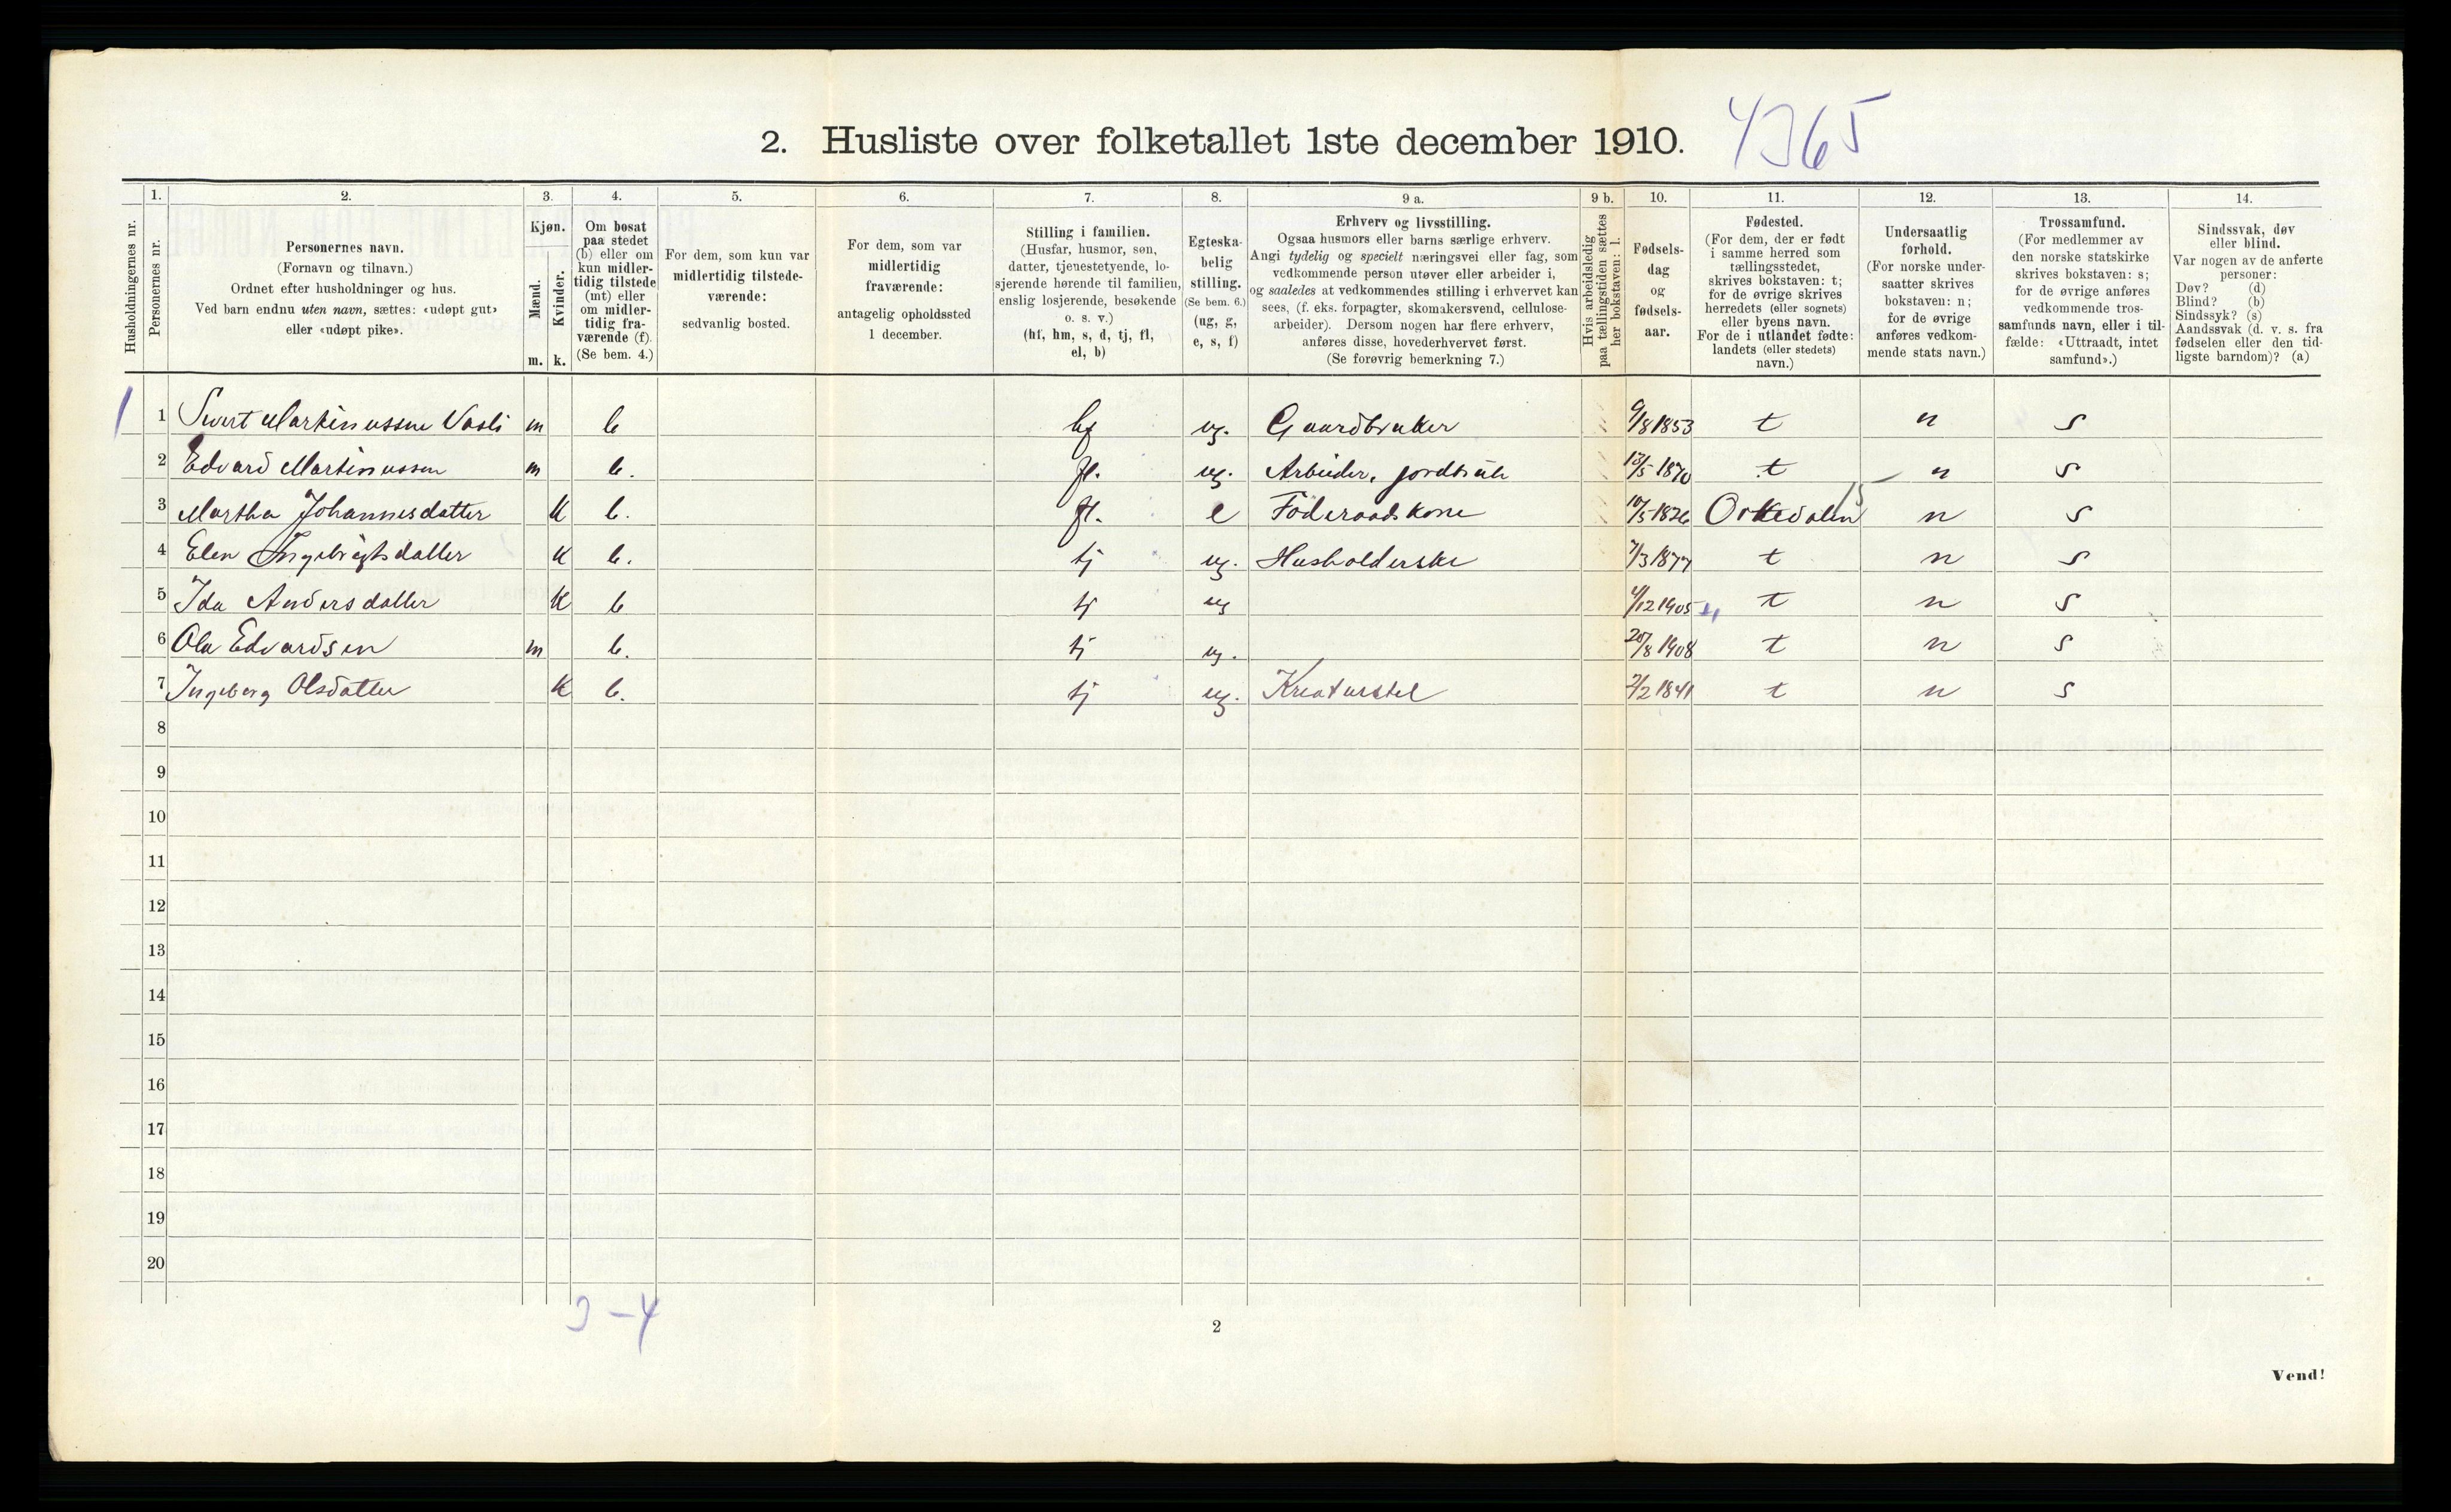 2. Husliste over folketallet 1ste december 1910. 4365
1. 2. 3. 4. 5. 6. 7. 8. 9 a. 9 b. 10. 11. 12. 13. 14.
Husholdningernes nr.
Personernes nr.
Personernes navn.
(Fornavn og tilnavn.)
Ordnet efter husholdninger og hus.
Ved barn endnu uten navn, sættes: «udøpt gut»
eller «udøpt pike».
Kjøn.
Mænd.
Kvinder.
m. k.
Om bosat
paa stedet
(b) eller om
kun midler-
tidig tilstede
(mt) eller
om midler-
tidig fra-
værende (f).
(Se bem. 4.)
For dem, som kun var
midlertidig tilstede-
værende:
sedvanlig bosted.
For dem, som var
midlertidig
fraværende:
antagelig opholdssted
1 december.
Stilling i familien.
(Husfar, husmor, søn,
datter, tjenestetyende, lo-
sjerende hørende til familien,
enslig losjerende, besøkende
o. s. v.)
(hf, hm, s, d, tj, fl,
el, b)
Egteska-
belig
stilling.
(Se bem. 6.)
(ug, g,
e, s, f)
Erhverv og livsstilling.
Ogsaa husmors eller barns særlige erhverv.
Angi tydelig og specielt næringsvei eller fag, som
vedkommende person utøver eller arbeider i,
og saaledes at vedkommendes stilling i erhvervet kan
sees, (f. eks. forpagter, skomakersvend, cellulose-
arbeider). Dersom nogen har flere erhverv,
anføres disse, hovederhvervet først.
(Se forøvrig bemerkning 7.)
Hvis arbeidsledig
paa tællingstiden sættes
her bokstaven: l.
Fødsels-
dag
og
fødsels-
aar.
Fødested.
(For dem, der er født
i samme herred som
tællingsstedet,
skrives bokstaven: t;
for de øvrige skrives
herredets (eller sognets)
eller byens navn.
For de i utlandet fødte:
landets (eller stedets)
navn.)
Undersaatlig
forhold.
(For norske under-
saatter skrives
bokstaven: n;
for de øvrige
anføres vedkom-
mende stats navn.)
Trossamfund.
(For medlemmer av
den norske statskirke
skrives bokstaven: s;
for de øvrige anføres
vedkommende tros-
samfunds navn, eller i til-
fælde: «Uttraadt, intet
samfund».)
Sindssvak, døv
eller blind.
Var nogen av de anførte
personer:
Døv? (d)
Blind? (b)
Sindssyk? (s)
Aandssvak (d. v. s. fra
fødselen eller den tid-
ligste barndom)? (a)
1 1 Sivert Martinussen Vasli m b hf ug. Gaardbruker 9/8 1853 t n s
2 Edvard Martinussen m b. fl. ug. Arbeider, jordbruk 13/5 1870 t n s
3 Martha Johannesdatter k b. fl. e Föderaadskone 10/5 1826 Orkedalen 15 n s
4 Elen Ingebrigtsdatter k b. tj ug. Husholderske 7/3 1877 t n s
5 Ida Andersdatter k b tj ug 4/12 1905 t n s
6 Ola Edvardsen m b. tj ug. 20/8 1908 t n s
7 Ingeborg Olsdatter k b. tj ug. Kreaturstel 2/2 1841 t n s
8
9
10
11
12
13
14
15
16
17
18
19
20
3 – 4
2
Vend!